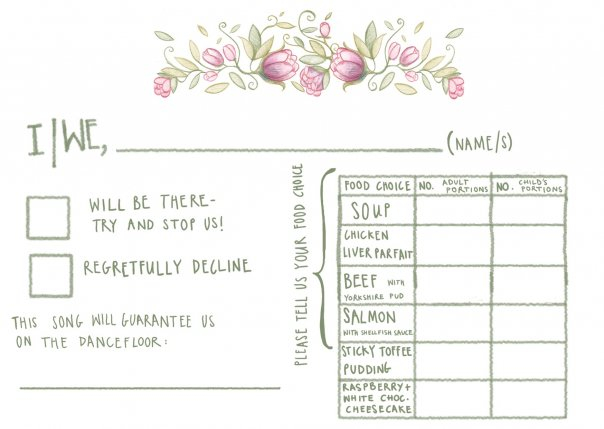 I|WE, (NAME/S)
WILL BE THERE-
TRY AND STOP US!
REGRETFULLY DECLINE
THIS SONG WILL GUARANTEE US
ON THE DANCEFLOOR:
PLEASE TELL US YOUR FOOD CHOICE
FOOD CHOICE NO. ADULT PORTIONS NO. CHILD'S PORTIONS
SOUP
CHICKEN
LIVER PARFAIT
BEEF WITH
YORKSHIRE PUD
SALMON
WITH SHELLFISH SAUCE
STICKY TOFFEE
PUDDING
RASPBERRY +
WHITE CHOC.
CHEESECAKE